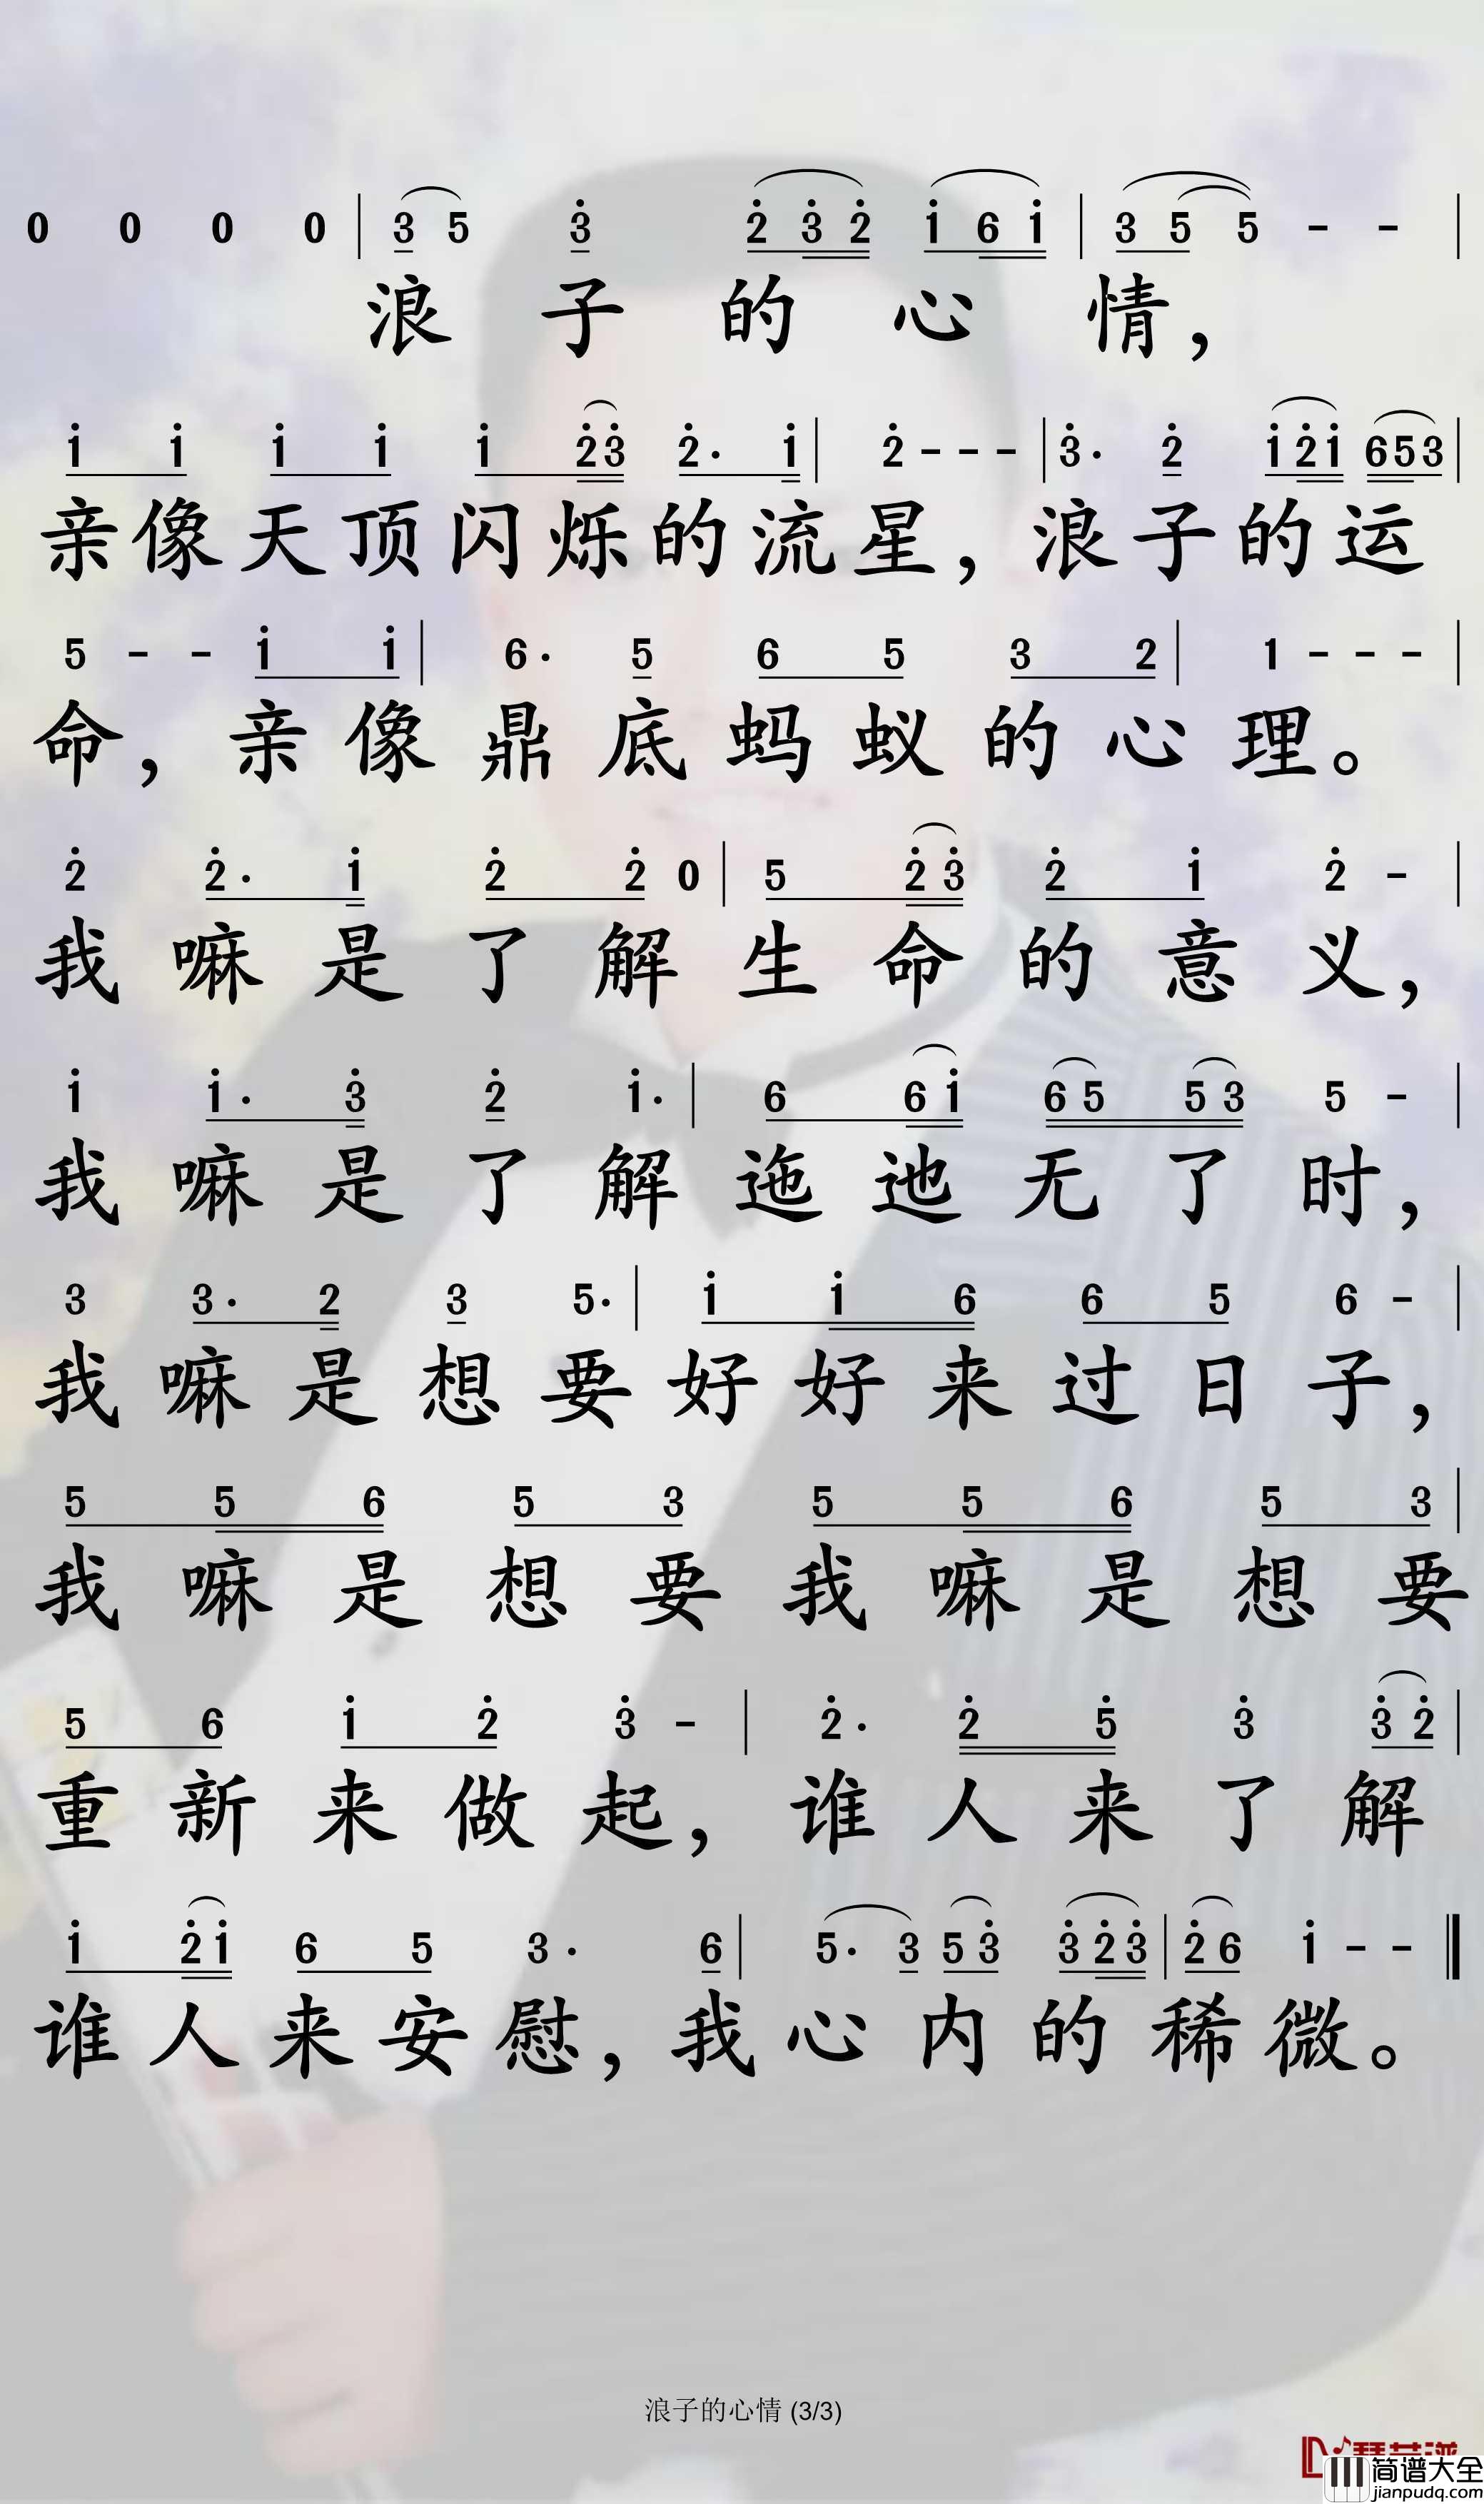 0 0 0 0 | 3 5 3 2 3 2 1 6 1 | 3 5 5 - - |
浪子的心情，
1 1 1 1 1 2 3 2 · 1 | 2 - - - | 3 · 2 1 2 1 6 5 3 |
亲像天顶闪烁的流星，浪子的运
5 - - 1 1 | 6 · 5 6 5 3 2 | 1 - - - |
命，亲像鼎底蚂蚁的心理。
2 2 · 1 2 2 0 | 5 2 3 2 1 2 - |
我嘛是了解生命的意义，
1 1 · 3 2 1 · | 6 6 1 6 5 5 3 5 - |
我嘛是了解迤迆无了时，
3 3 · 2 3 5 · | 1 1 6 6 5 6 - |
我嘛是想要好好来过日子，
5 5 6 5 3 5 5 6 5 3 |
我嘛是想要我嘛是想要
5 6 1 2 3 - | 2 · 2 5 3 3 2 |
重新来做起，谁人来了解
1 2 1 6 5 3 · 6 | 5 · 3 5 3 3 2 3 | 2 6 1 - - ‖
谁人来安慰，我心内的稀微。
浪子的心情 (3/3)
简谱大全
jianpudq.com